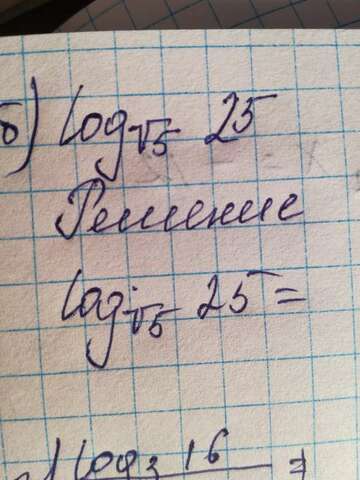 б) log√5 25
Решение
log√5 25 =
log₃ 16 =